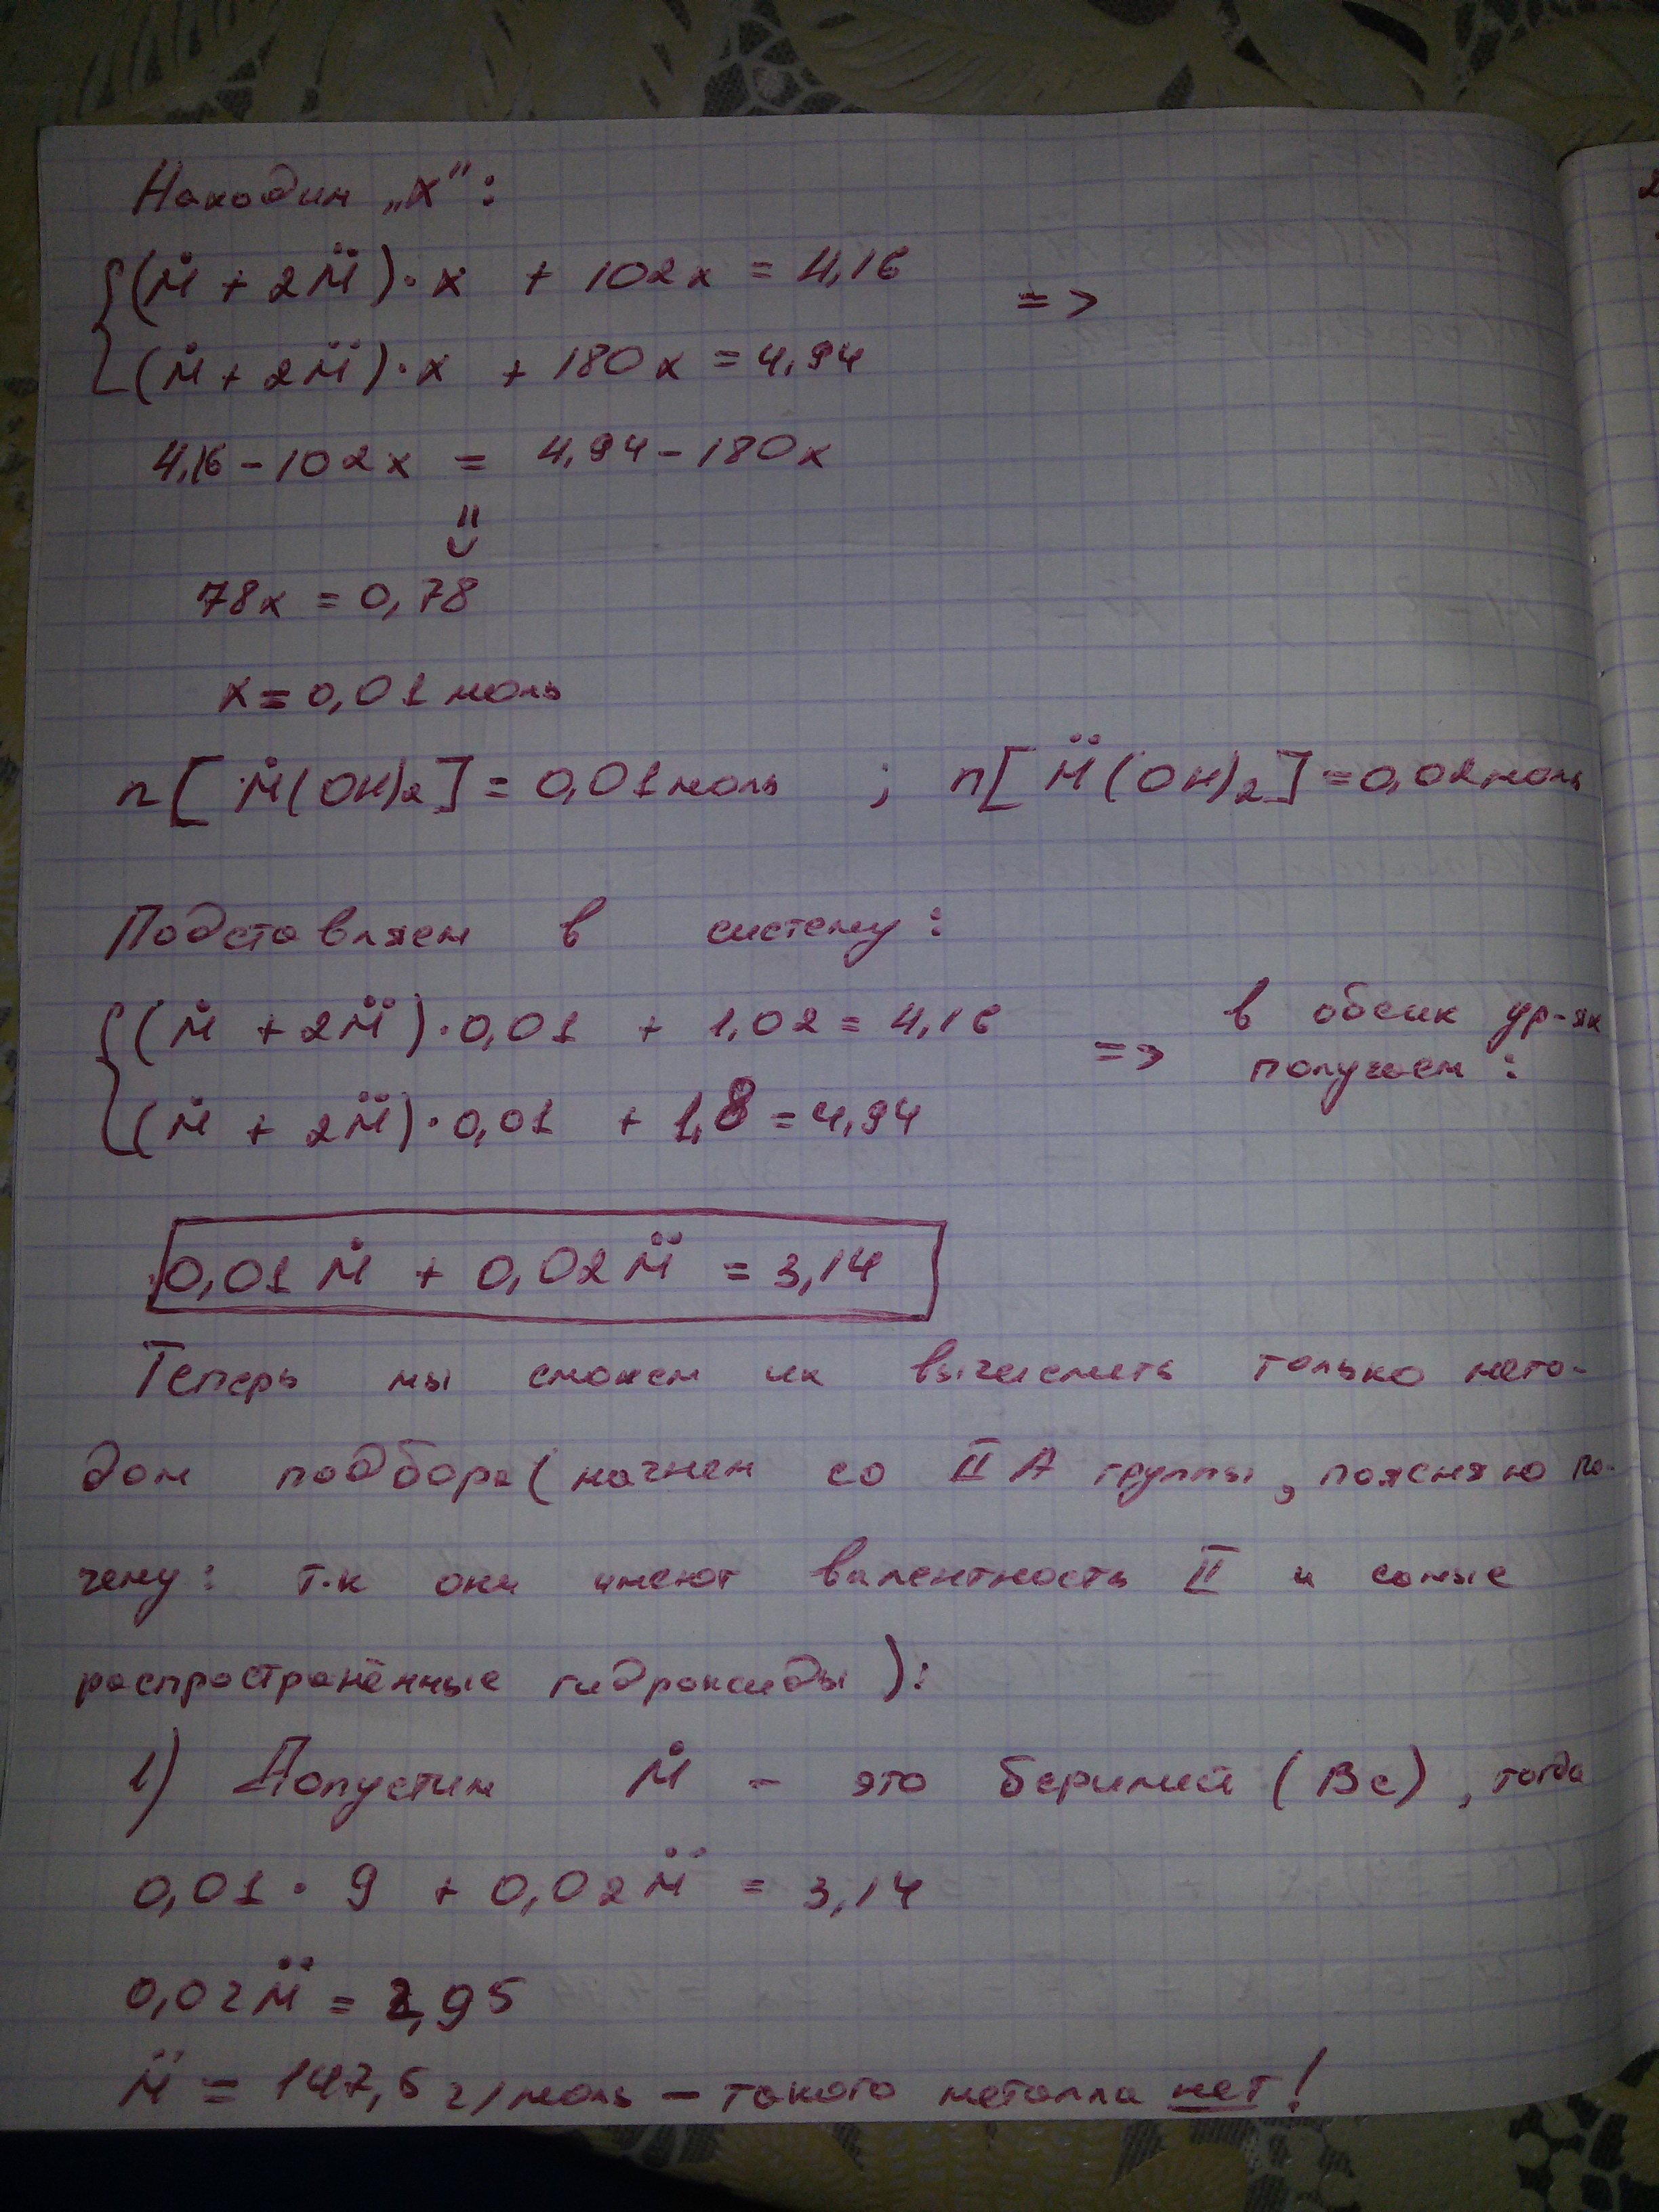 Находим „x":
(Ṁ + 2M̈)·x + 102x = 4,16 =>
(Ṁ + 2M̈)·x + 180x = 4,94
4,16 - 102x = 4,94 - 180x
78x = 0,78
x = 0,01 моль
n[Ṁ(OH)2] = 0,01 моль ; n[M̈(OH)2] = 0,02 моль
Подставляем в систему:
(Ṁ + 2M̈)·0,01 + 1,02 = 4,16 => в обеих ур-ях
(Ṁ + 2M̈)·0,01 + 1,8 = 4,94 получаем:
0,01Ṁ + 0,02M̈ = 3,14
Теперь мы сможем их вычислить только мето-
дом подбора (начнем со II A группы, поясняю по-
чему: т.к они имеют валентность II и самые
распространённые гидроксиды):
1) Допустим Ṁ - это берилий (Be), тогда
0,01 · 9 + 0,02M̈ = 3,14
0,02M̈ = 2,95
M̈ = 147,5 г/моль - такого металла нет!